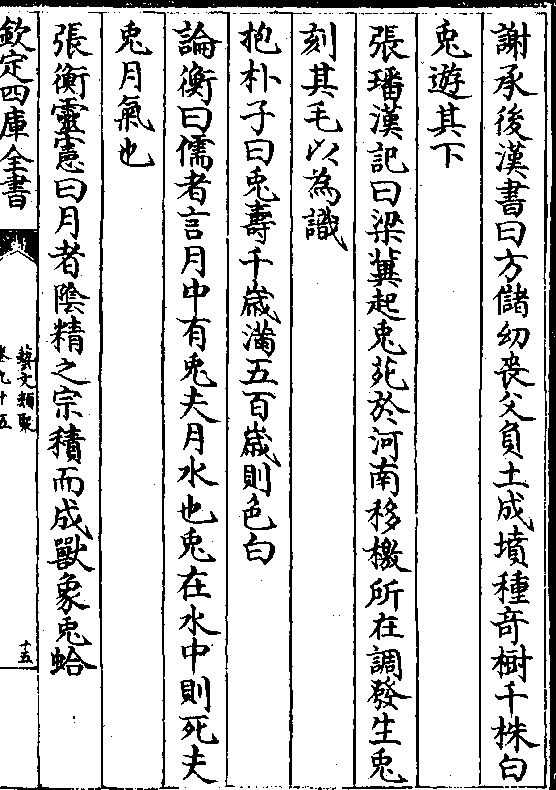 謝承後漢書曰方儲幼喪父負土成墳種竒樹千株白
兎遊其下
張璠漢記曰梁冀起兎苑於河南移檄所在調發生兎
刻其毛以為識
抱朴子曰兎壽千嵗滿五百嵗則色白
論衡曰儒者言月中有兎夫月水也兎在水中則死夫
兎月氣也
張衡靈憲曰月者陰精之宗積而成獸象兎蛤
欽定四庫全書
藝文類聚
卷九十五
十五